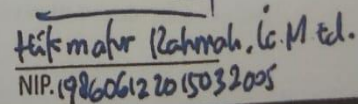 Hikmatur Rahmah, Lc. M Ed.
NIP. 198606122015032005